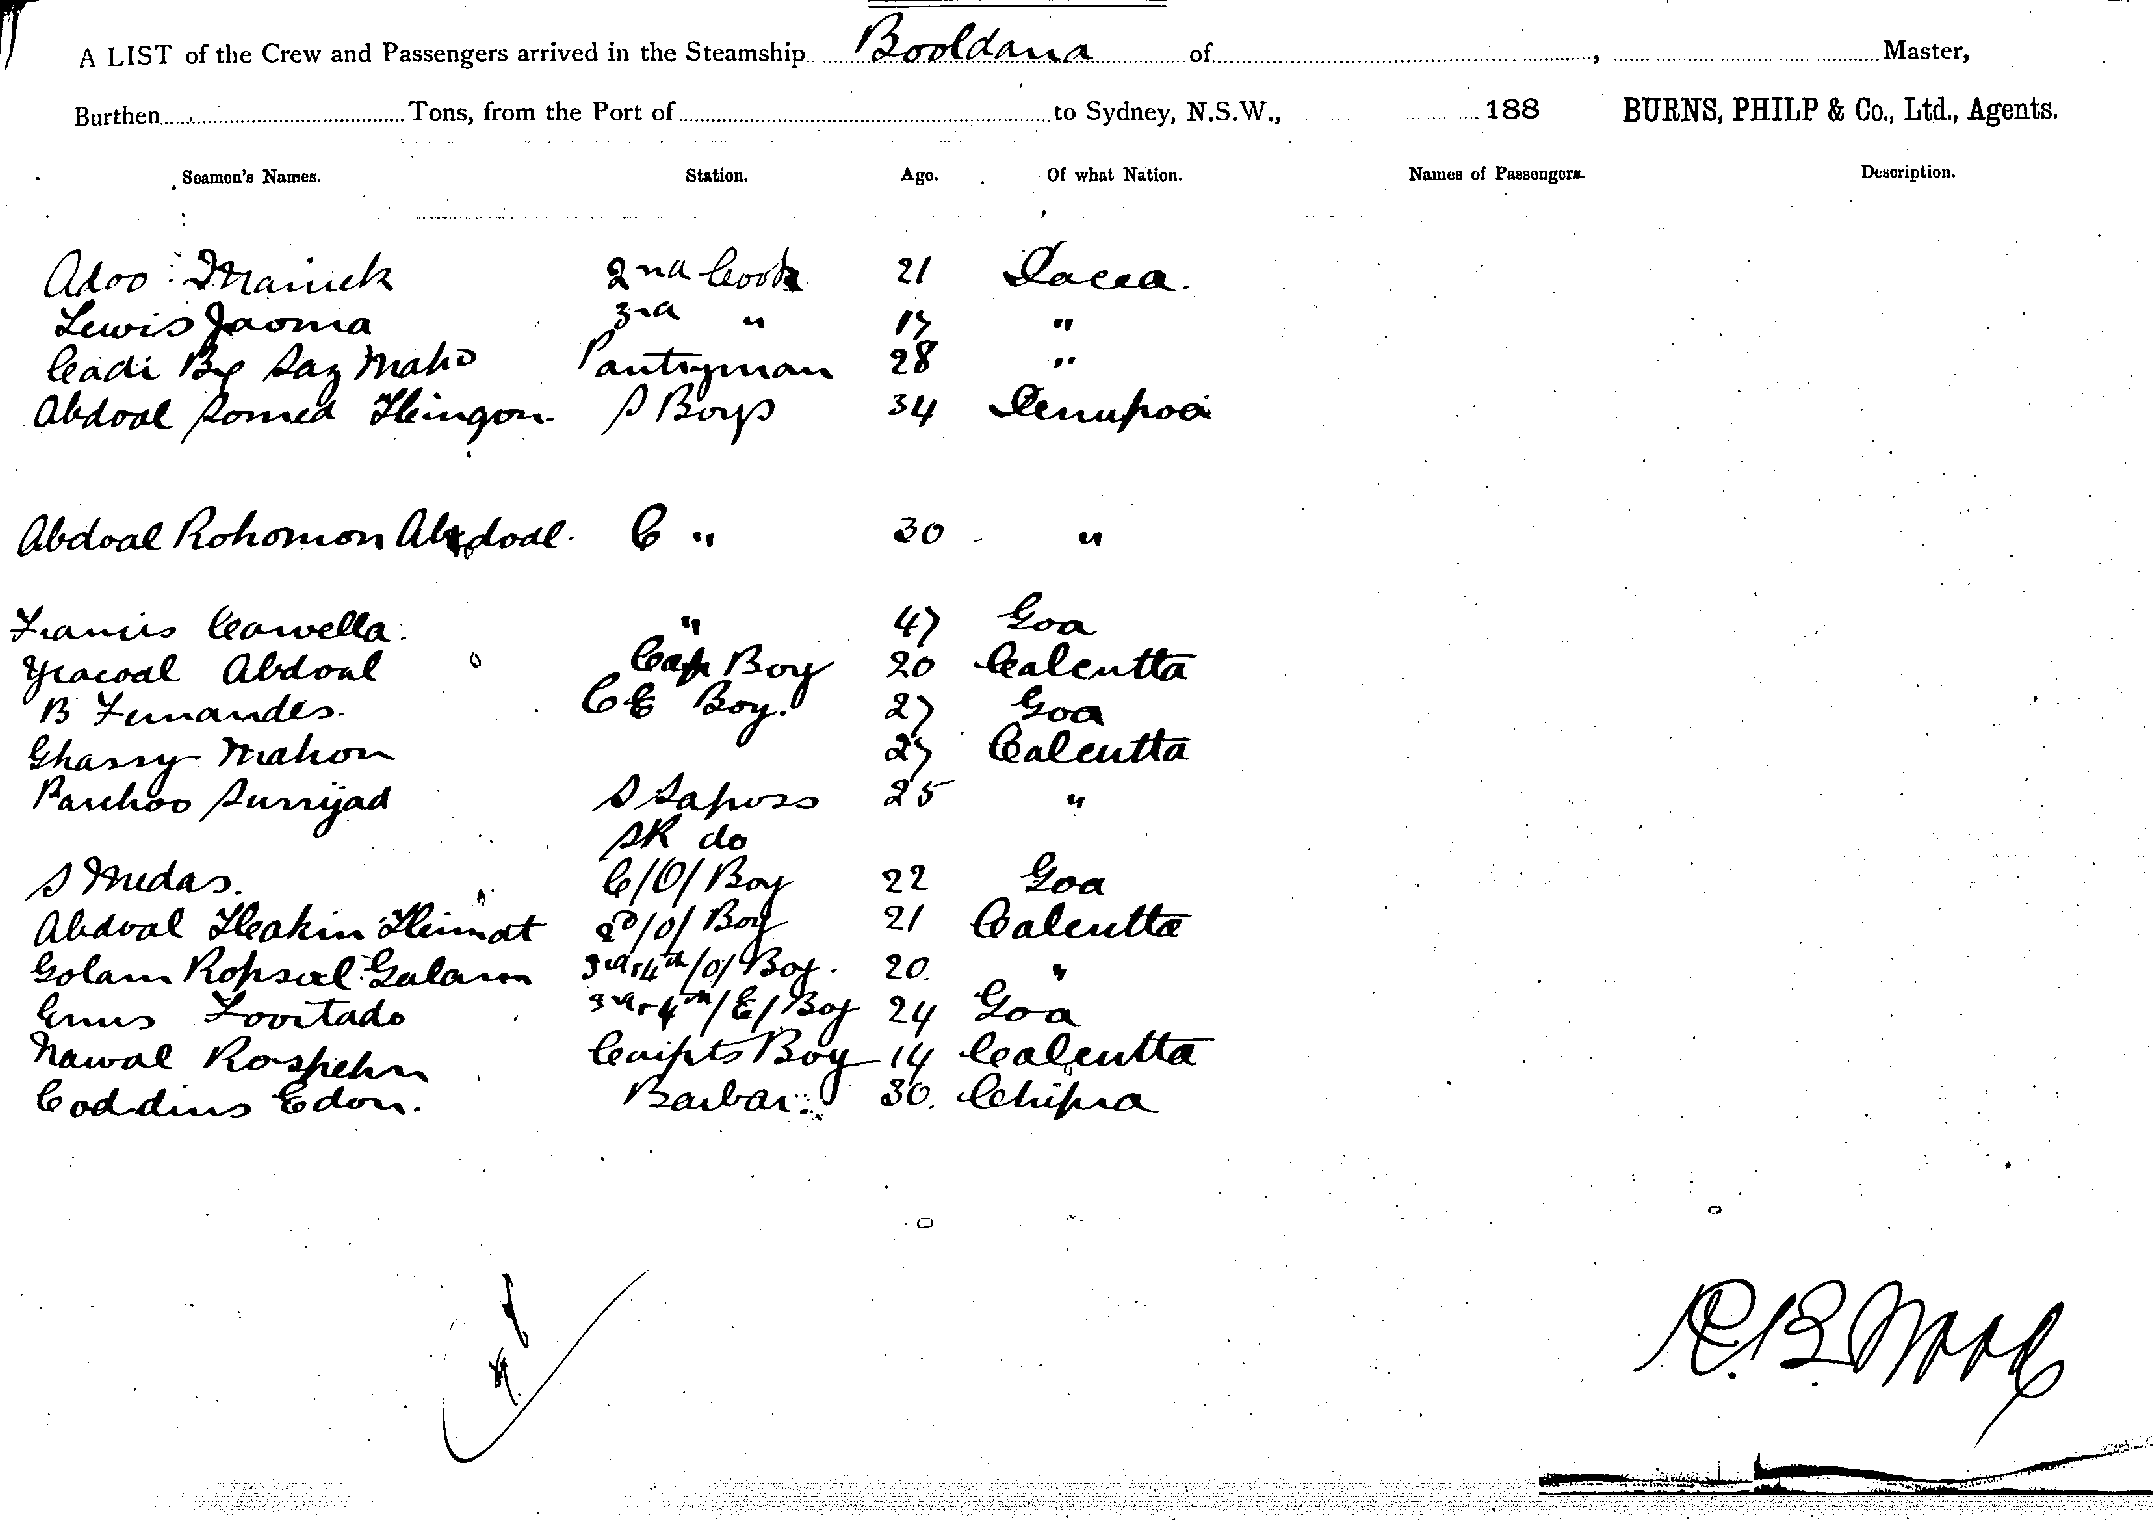 A LIST of the Crew and Passengers arrived in the Steamship Booldana of , Master,
Burthen Tons, from the Port of to Sydney, N.S.W., 188 BURNS, PHILP & Co., Ltd., Agents.
Seamen's Names. Station. Age. Of what Nation. Names of Passengers. Description.
Adoo Manick 2nd Cook 21 Dacca.
Lewis Jaoma 3rd " 17 "
Cadi Bx Saz Maho Pantryman 28 "
Abdoal Somed Heingon S Boys 34
Abdoal Rohomon Abdoal. C " 30 "
Francis Carvella. " 47 Goa
Yracoal Abdoal Cap Boy 20 Calcutta
B Fernandes. CE Boy. 27 Goa
Ghassy Mahon 27 Calcutta
Parchoo Surryad S Saposs 25 "
SR do
S Medas. C/O/ Boy 22 Goa
Abdoal Heakin Heimat 2D/O/ Boy 21 Calcutta
Golam Ropsael Galam 3rd & 4th/O/ Boy. 20. "
Ennis Foortado 3rd & 4th/E/ Boy 24 Goa
Nawal Rospehn Boy 14 Calcutta
Coddins Edon. Barbar. 30. Chipra